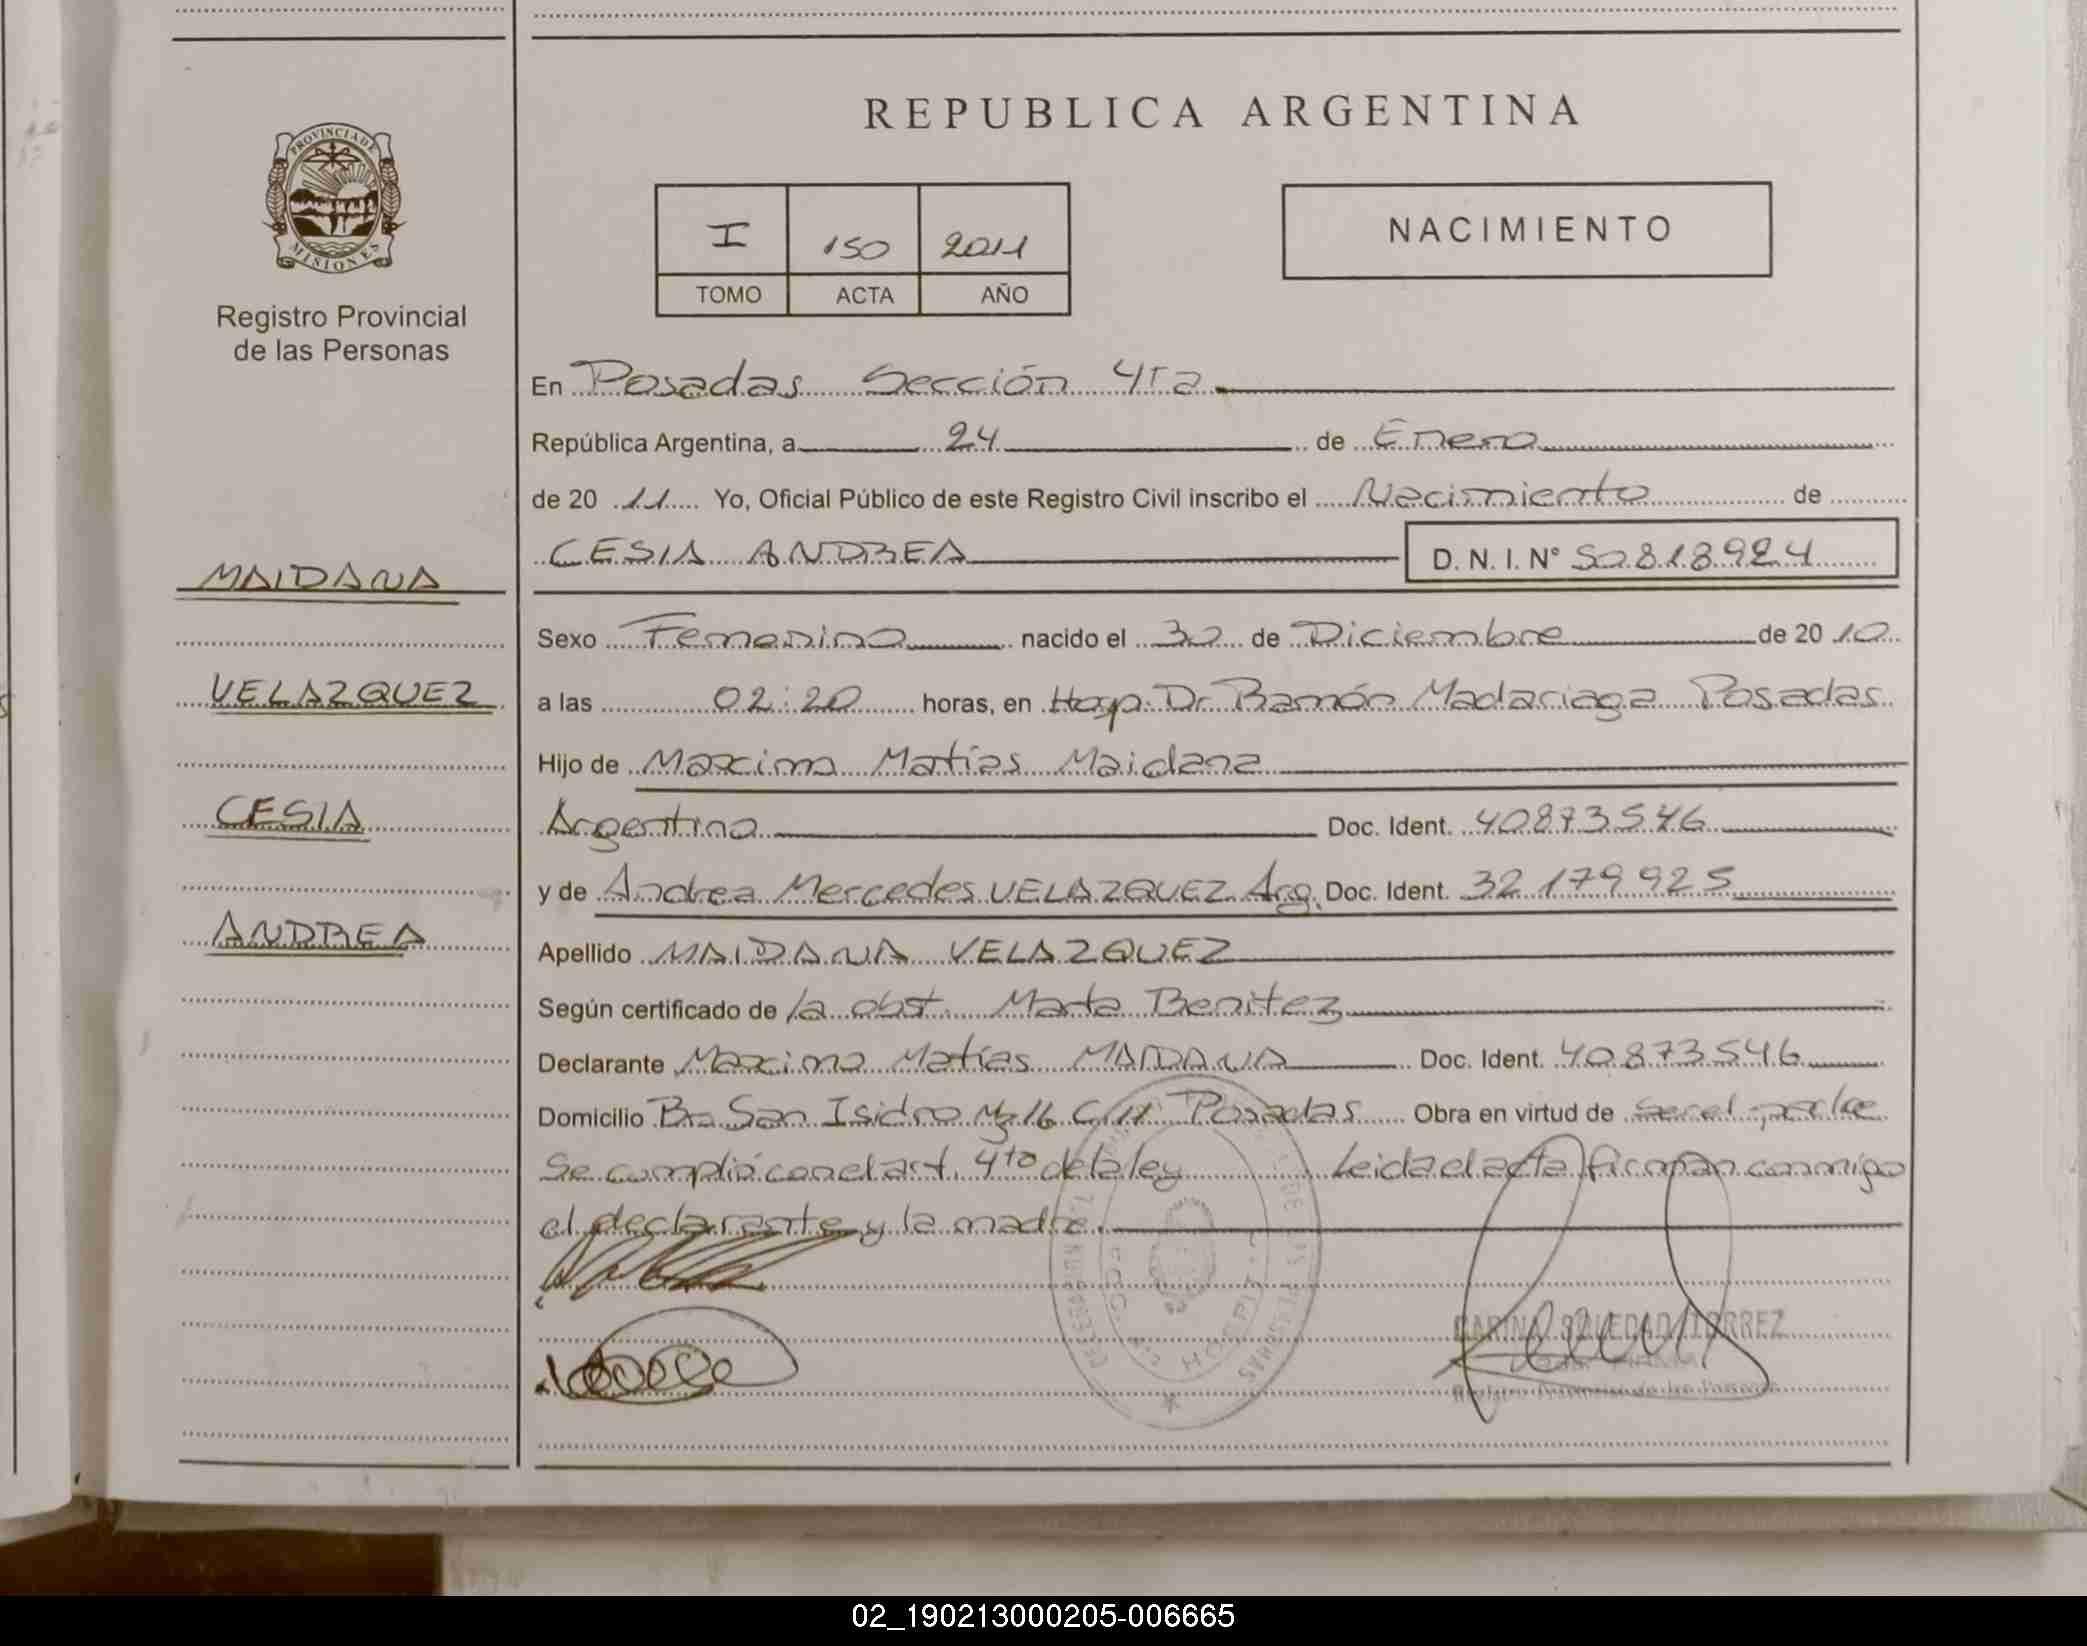 REPUBLICA ARGENTINA
PROVINCIA DE
MISIONES
Registro Provincial
de las Personas
I 150 2011
TOMO ACTA AÑO
NACIMIENTO
En Posadas Sección 4ta
República Argentina, a 24 de Enero
de 20 11 Yo, Oficial Público de este Registro Civil inscribo el Nacimiento de
CESIA ANDREA D. N. I. N° 50818924
MAIDANA
VELAZQUEZ
CESIA
ANDREA
Sexo Femenino nacido el 30 de Diciembre de 20 10
a las 02:20 horas, en Hosp. Dr Ramón Madariaga Posadas
Hijo de Maximo Matías Maidana
Argentino Doc. Ident. 40873546
y de Andrea Mercedes VELAZQUEZ Arg. Doc. Ident. 32179925
Apellido MAIDANA VELAZQUEZ
Según certificado de la obst. Marta Benitez
Declarante Maximo Matías MAIDANA Doc. Ident. 40873546
Domicilio Bo San Isidro Mz 16 C 11 Posadas Obra en virtud de ser el padre
Se cumplió con el art. 4to de la ley Leida el acta firman conmigo
el declarante y la madre.
CARINA SOLEDAD TORREZ
Registro Provincial de las Personas
02_190213000205-006665